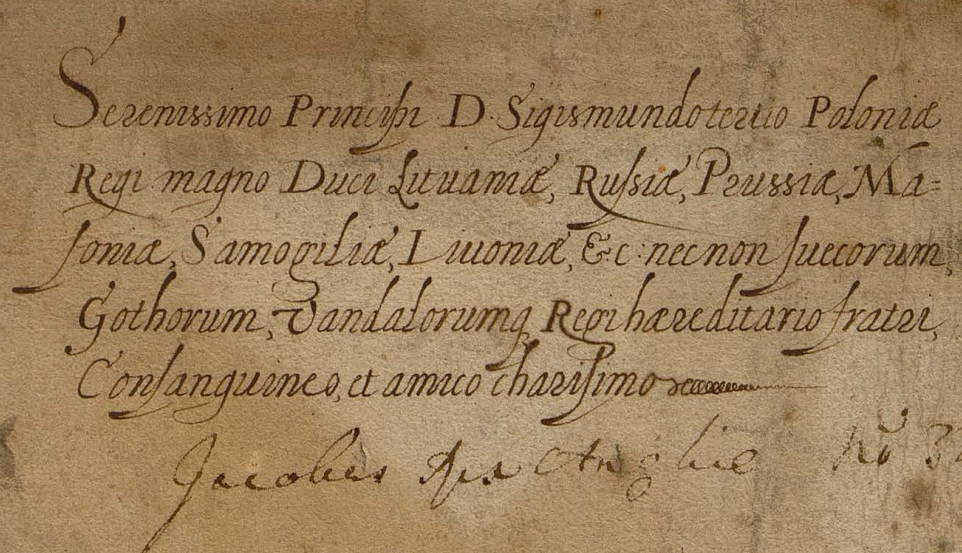 Serenissimo Principi D. Sigismundo tertio Poloniæ
Regi magno Duci Lituaniæ, Russiæ, Prussiæ, Ma=
soniæ, Samogitiæ, Livoniæ, &c: nec non Suecorum,
Gothorum, Vandalorumq Regi hæreditario fratri,
Consanguineo, et amico charissimo
Jacobus Anglie No 3